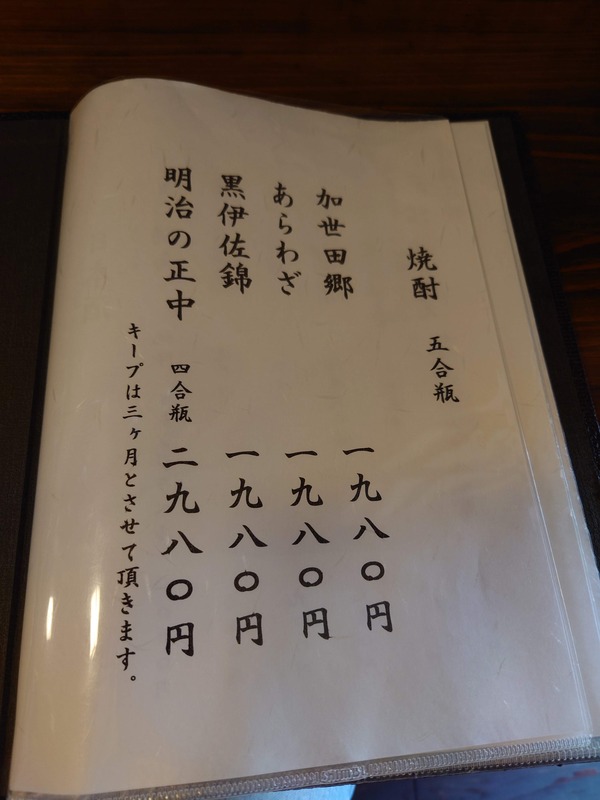 焼酎 五合瓶
加世田郷 一九八〇円
あらわざ 一九八〇円
黒伊佐錦 一九八〇円
明治の正中 四合瓶 二九八〇円
キープは三ヶ月とさせて頂きます。